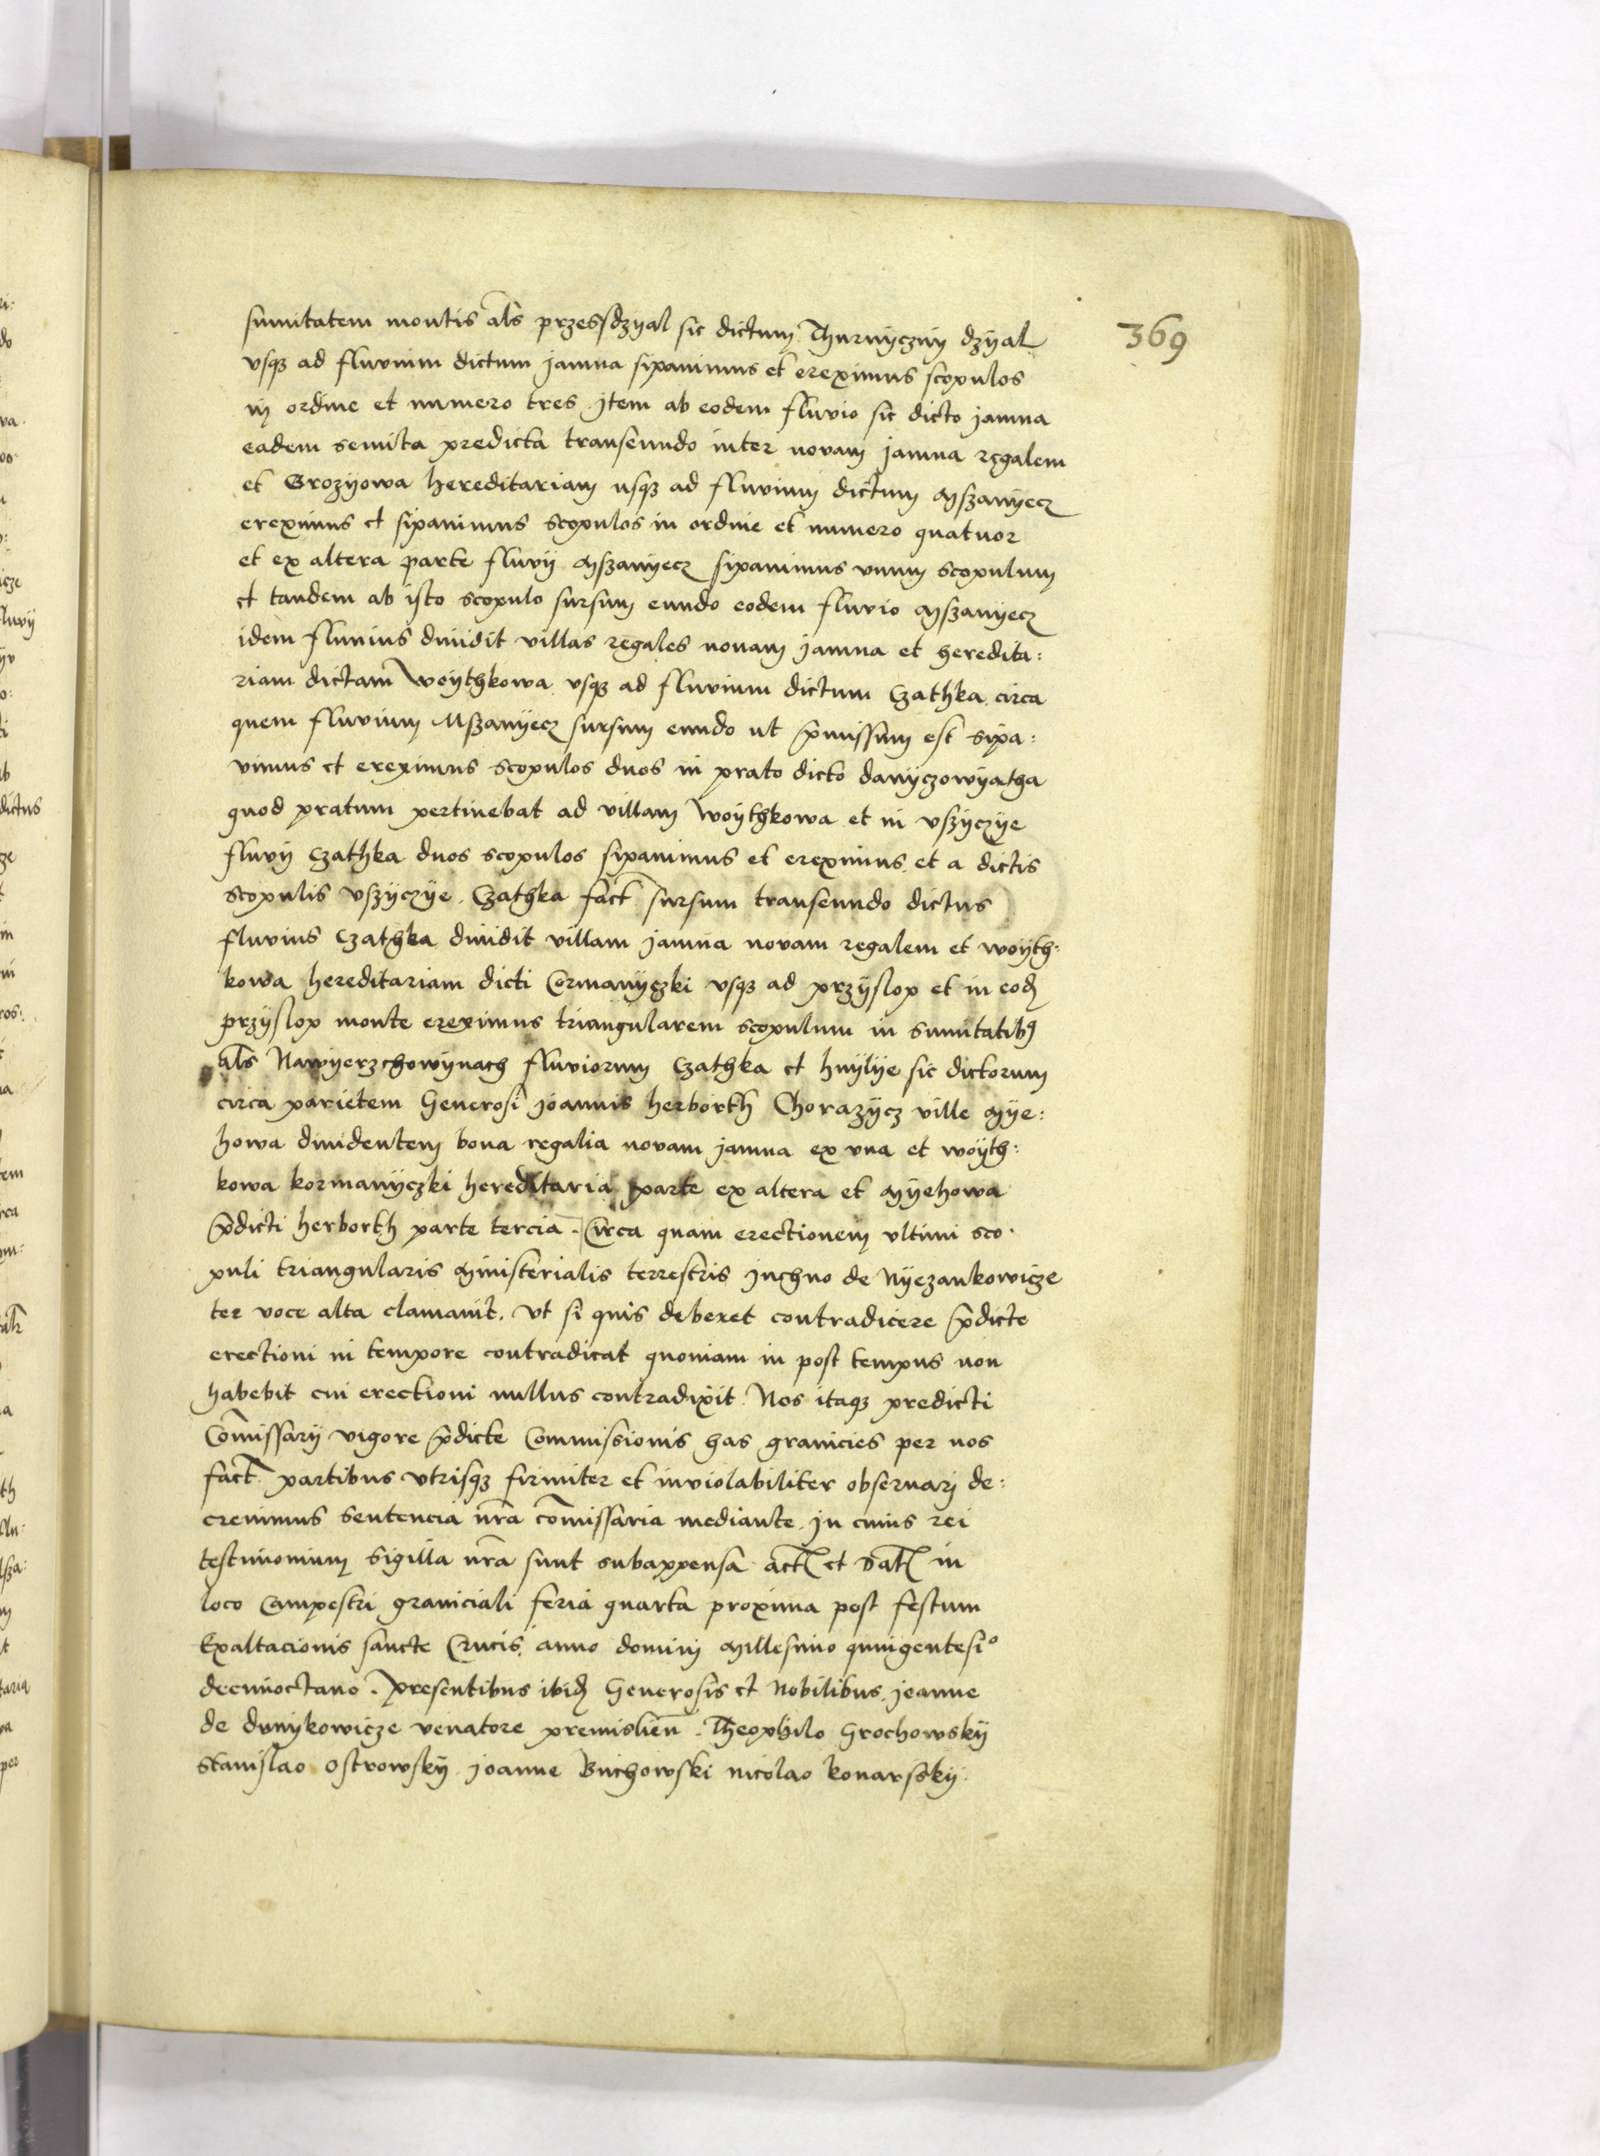 369
sumitatem montis als przessdzyal sic dictum Thurnyczny dzyal
vsqz ad fluvium dictum jamna sipauimus et ereximus scopulos
in ordine et numero tres. Item ab eodem fluvio sic dicto jamna
eadem semita predicta transeundo inter novam jamna regalem
et Grozyowa hereditariam usqz ad fluvium dictum Mszanyecz
ereximus et sipauimus scopulos in ordine et numero quatuor
et ex altera parte fluvij Mszanyecz sipauimus vnum scopulum
et tandem ab isto scopulo sursum eundo eodem fluvio Mszanyecz
idem fluuius diuidit villas regales nouam jamna et heredita:
riam dictam Woythkowa vsqz ad fluvium dictum Czathka circa
quem fluvium Mszanyecz sursum eundo ut pmissum est sipa:
vimus et ereximus scopulos duos in prato dicto danyczowyatha
quod pratum pertinebat ad villam Woythkowa et in vszyczye
fluvij Czathka duos scopulos sipauimus et ereximus. et a dictis
scopulis vszyczye. Czathka fact sursum transeundo dictus
fluvius Czathka diuidit villam jamna novam regalem et woyth:
kowa hereditariam dicti Cormanyczki vsqz ad przyslop et in eod
przyslop monte ereximus triangularem scopulum in sumitatibq
als Nawyerzchowynach fluviorum Czathka et hnylye sic dictorum
circa parietem Generosi Joannis herborth Chorazycz ville Mye:
howa diuidentem bona regalia novam jamna ex vna et woyth:
kowa kormanyczki hereditaria parte ex altera et Myehowa
pdicti herborth parte tercia. Circa quam erectionem ultimi sco:
puli triangularis Ministerialis terrestris Juchno de Nyezankowicze
ter voce alta clamauit. vt si quis deberet contradicere pdicte
erectioni in tempore contradicat quoniam in post tempus non
habebit cui erectioni nullus contradixit. Nos itaqz predicti
Comissarij vigore pdicte Commissionis has granicies per nos
fact partibus vtrisqz firmiter et inviolabiliter obseruarj de:
creuimus sentencia nra comissaria mediante. Jn cuius rei
testimonium sigilla nra sunt subappensa. act et dat in
loco Campestri graniciali feria quarta proxima post festum
Exaltacionis sancte Crucis. anno domini Millesimo quingentesio
decimoctauo. Presentibus ibid Generosis et Nobilibus. Joanne
de drnykowicze venatore premislien. Theophilo Grochowsky
Stanislao ostrowsky Joanne Buchowski nicolao konarssky.